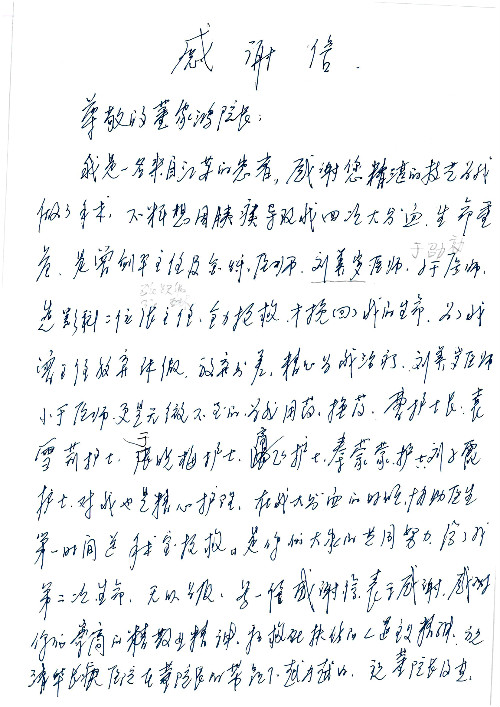 感谢信.
尊敬的董家鸿院长:
我是一名来自江苏的患者,感谢您精湛的技术为我
做了手术,不料想因胰瘘导致我四次大分血,生命垂
危,是曾创平主任及医师,刘美岁医师,于医师,
于
影科二位张主任,全力抢救,才挽回了我的生命,为了我
主任放弃休假,放弃出差,精心为我治疗,刘美岁医师
小于医师更是无微不至的为我用药,换药,曹护士长,袁
雪莉护士,唐晓梅护士,飞护士,秦蒙蒙护士,刘子霞
护士,对我也是精心护理,在我大分血的时候,协助医生
第一时间送手术室抢救。是你们大家的共同努力,给了我
第二次生命,无以为报,写一信感谢信表示感谢,感谢
你们崇高的精敬业精神,和救死扶伤的人道主义精神,祝
清华长庚医院在董院长的带领下越办越好,祝董院长及